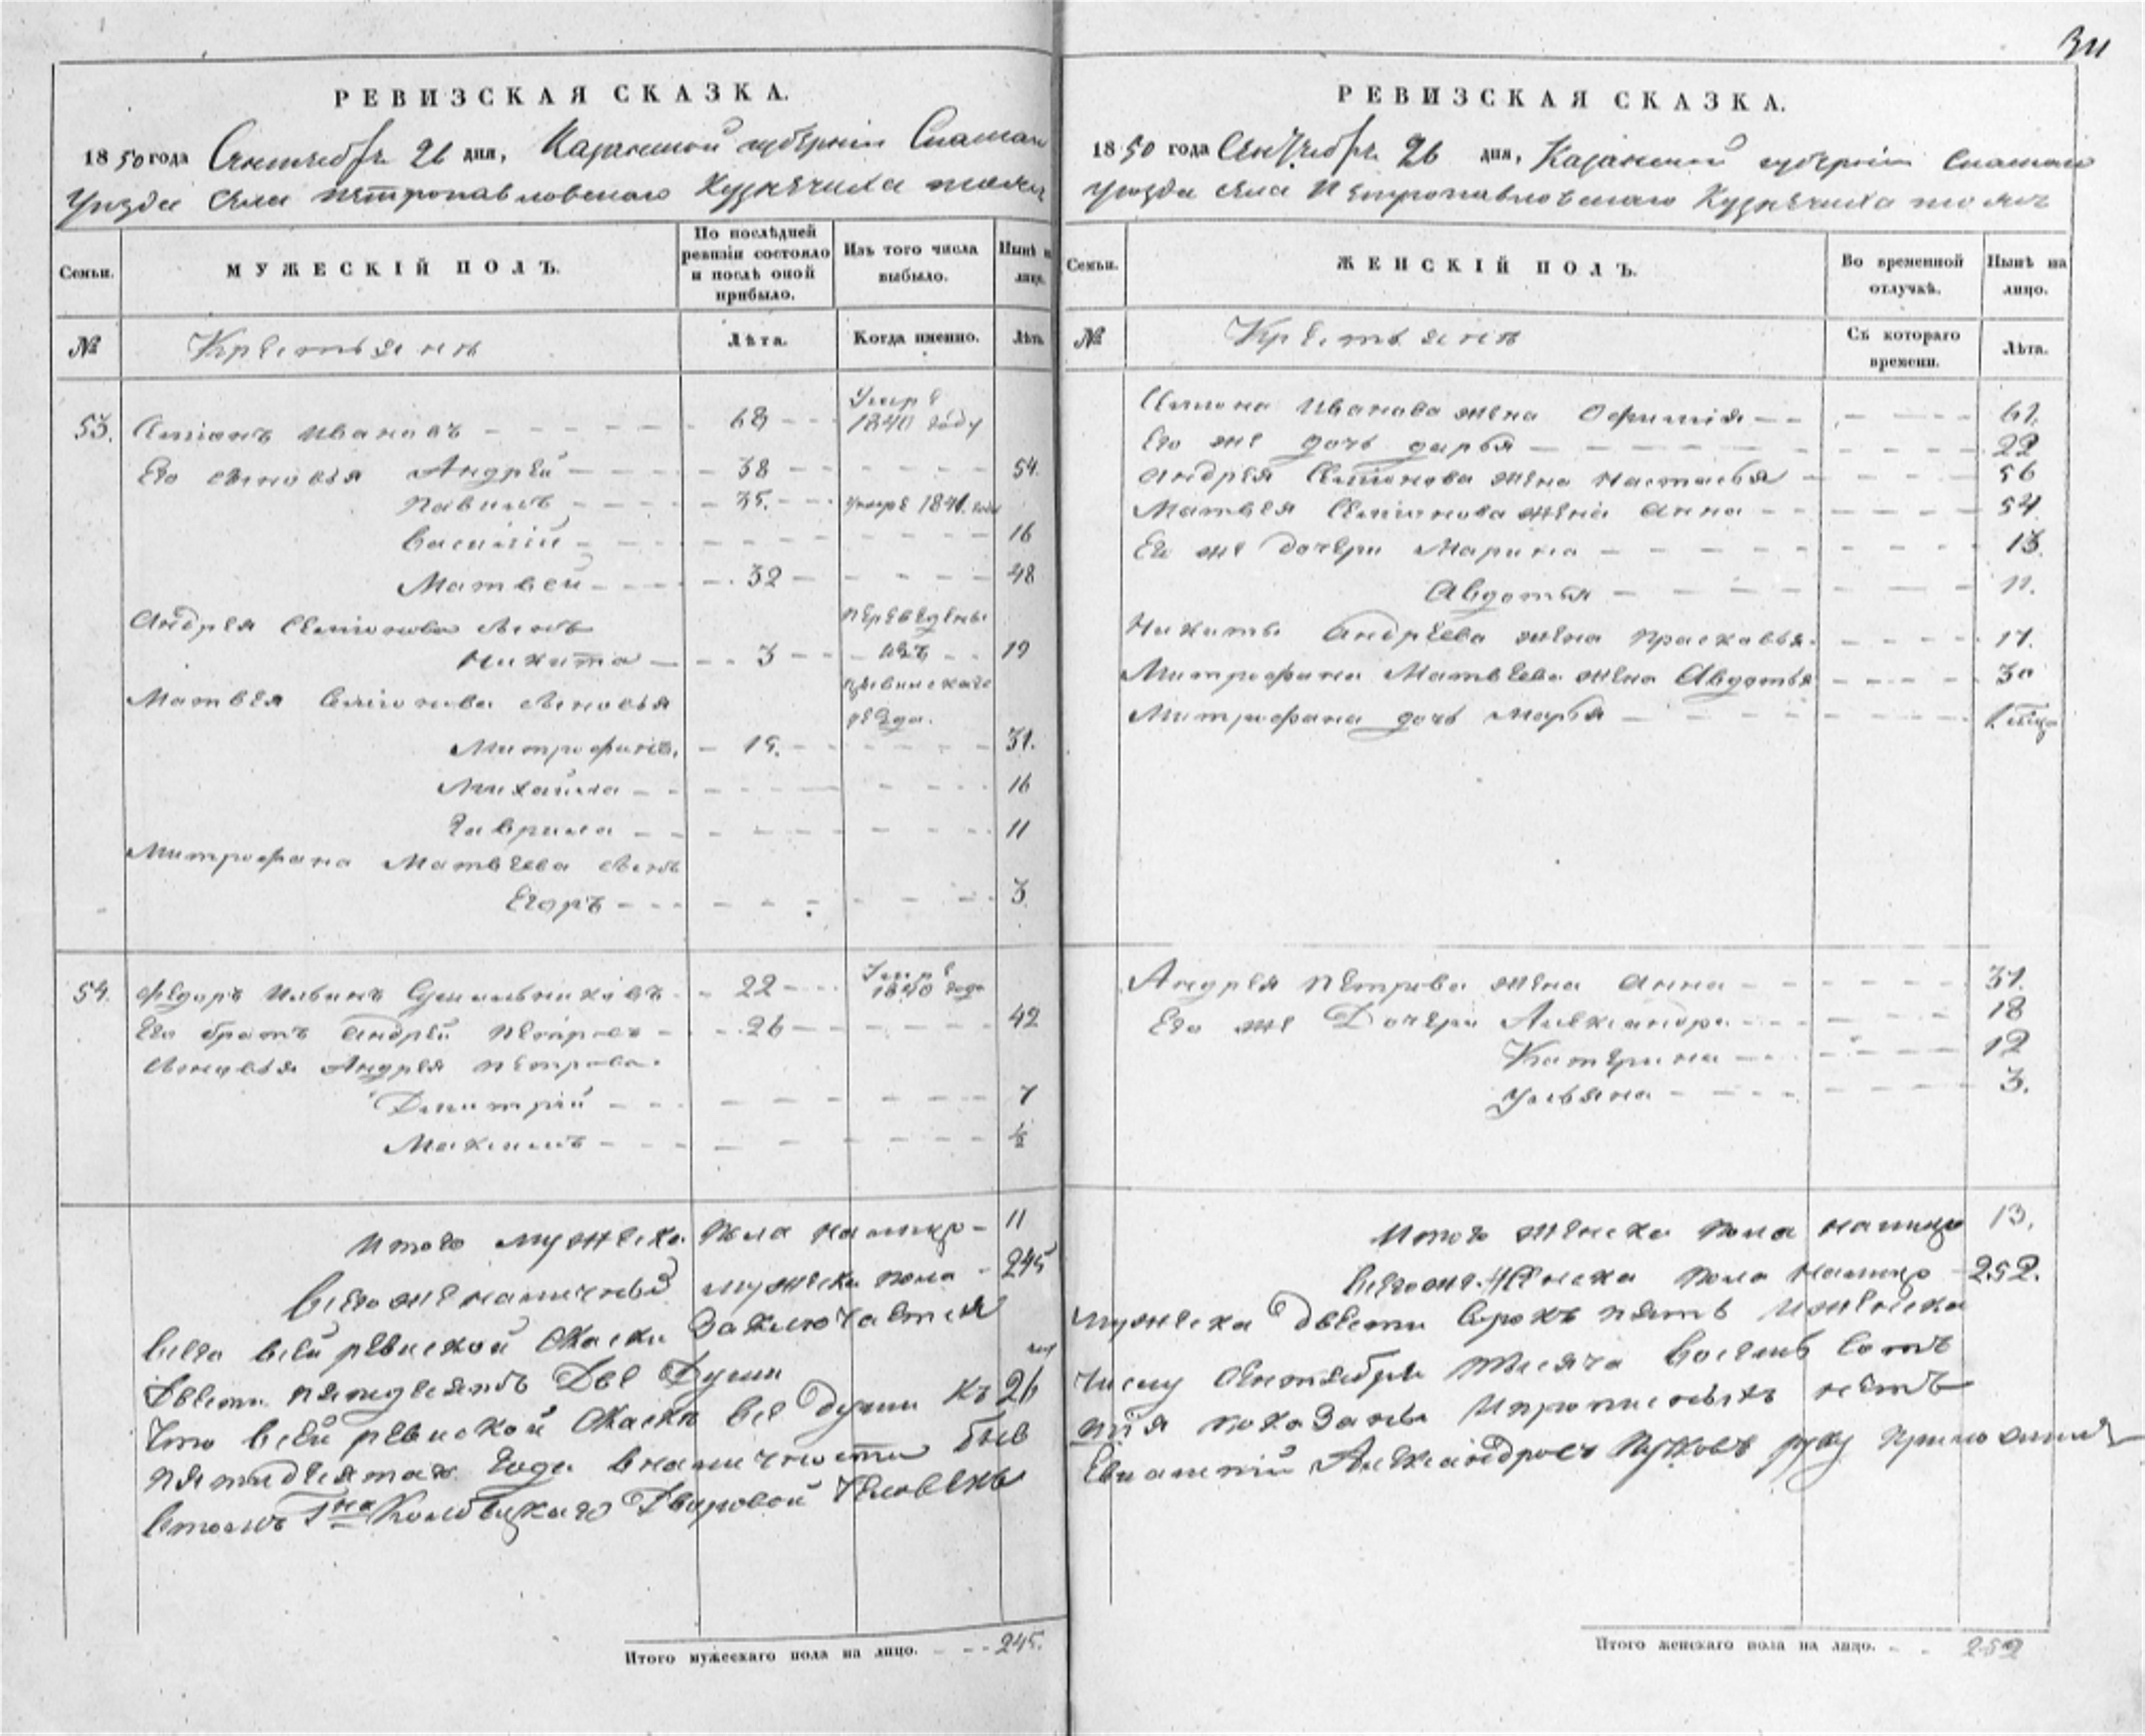 РЕВИЗСКАЯ СКАЗКА.
1850 года Сентября 26 дня, Казанской губернии Спаскаго
уезда села Петропавловскаго Кузнечиха тожъ
Семьи.
МУЖЕСКІЙ ПОЛЪ.
По послѣдней ревизіи состояло и послѣ оной прибыло.
Изъ того числа выбыло.
Нынѣ на лицо.
№
Крестьяне
Лѣта.
Когда именно.
Лѣта.
53. Симіонъ Ивановъ 68 Умре 1840 году
Его сыновья Андрей 38 54.
Павилъ 35. умре 1841. года
Василій 16
Матвей 32 48
Андрея Семионова сынъ
Никита 3 19
переведены изъ уезда.
Матвея Семионова сыновья
Митрофанъ. 15. 31.
Михайла 16
Гаврила 11
Митрофана Матвеева сынъ
Егоръ 3
54. Федоръ Ильинъ 22 Умре 1840 года
Его братъ Андрей Петровъ 26 42
Сыновья Андрея Петрова.
Дмитрій 7
Максимъ 1/2
Итого мужеска пола налицо 11
Всего же наличных мужеска пола 245
Всего в сей ревиской скаски заключается
Двести пятидесятъ Две Души
Что в сей ревиской скаски все души къ 26
пятидесятаго года в наличности быв
в томъ Гна Дворовой Человекъ
Итого мужескаго пола на лицо. 245.
34
РЕВИЗСКАЯ СКАЗКА.
1850 года Сентября 26 дня, Казанской губернии Спаскаго
уезда села Петропавловскаго Кузнечиха тожъ
Семьи.
ЖЕНСКІЙ ПОЛЪ.
Во временной отлучкѣ.
Нынѣ на лицо.
№
Крестьяне
Съ котораго времени.
Лѣта.
Симиона Иванова жена Офимія 61.
Его же дочь дарья 22
Андрея Семионова жена Настасья 56
Матвея Семионова жена Анна 54
Его же дочери Марина 13.
Авдотья 11.
Никиты Андреева жена Прасковья. 17.
Митрофана Матвеева жена Авдотья 30
Митрофана дочь Марья
Андрея Петрова жена Анна 37.
Его же Дочери Александра 18
Катерина 12
Ульяна 3.
Итого женска пола налицо 13.
Всего же женска пола налицо 252.
мужеска двести сорокъ пять и женска
числу Сентября тысяча восемь сотъ
показаны и прописныхъ нетъ
Александровъ руку приложилъ
Итого женскаго пола на лицо. 252